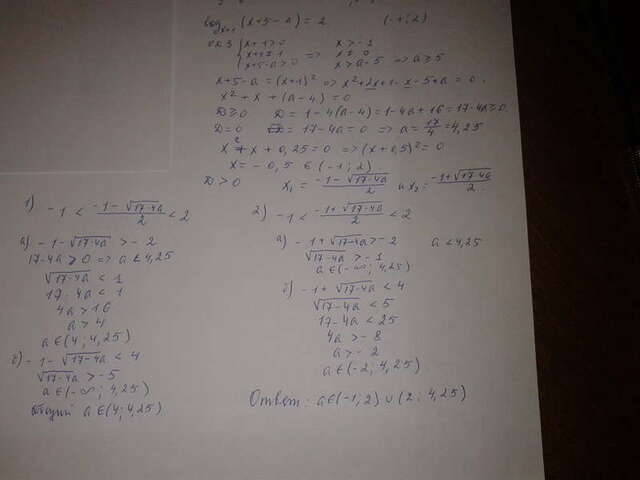 log x+1 (x+5-a) = 2 (-1; 2)
ОДЗ { x+1>0 x>-1
x+1≠1 => x≠0
x+5-a>0 x>a-5 => a≥5
x+5-a = (x+1)² => x²+2x+1-x-5+a=0.
x² + x + (a-4) = 0
D≥0 D = 1-4(a-4) = 1-4a+16 = 17-4a≥0
D=0 = 17-4a=0 => a = 17/4 = 4,25
x² + x + 0,25 = 0 => (x+0,5)² = 0
x = -0,5 ∈ (-1; 2).
D>0 x₁ = (-1-√17-4a)/2 и x₂ = (-1+√17-4a)/2
1) -1 < (-1-√17-4a)/2 < 2
а) -1-√17-4a > -2
17-4a>0 => a<4,25
√17-4a < 1
17-4a < 1
4a > 16
a > 4
a∈(4; 4,25)
б) -1-√17-4a < 4
√17-4a > -5
a∈(-∞; 4,25)
общий a∈(4; 4,25)
2) -1 < (-1+√17-4a)/2 < 2
а) -1+√17-4a > -2 a<4,25
√17-4a > -1
a∈(-∞; 4,25)
б) -1+√17-4a < 4
√17-4a < 5
17-4a < 25
4a > -8
a > -2
a∈(-2; 4,25)
Ответ: a∈(-1; 2) ∪ (2; 4,25)